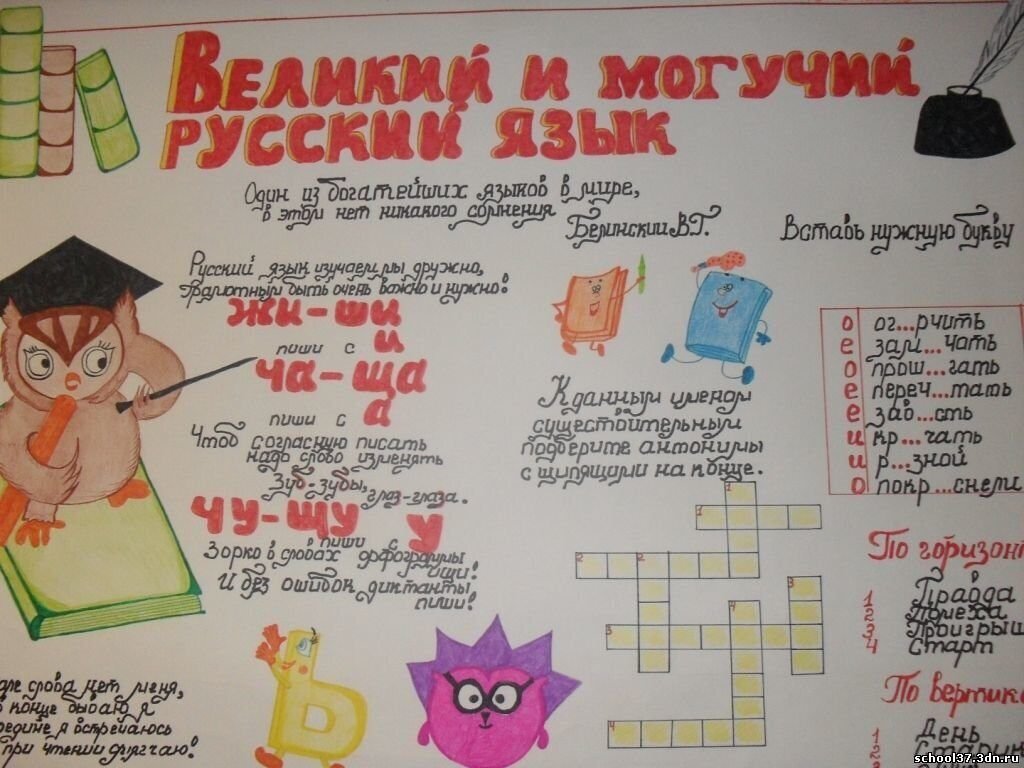 Великий и могучий
русский язык
Один из богатейших языков в мире,
в этом нет никакого сомнения
Белинский В.Г.
Русский язык изучаем мы дружно,
Грамотным быть очень важно и нужно!
жи-ши
пиши с и
ча-ща
пиши с а
Чтоб согласную писать
надо слово изменять
Зуб-зубы, глаз-глаза.
чу-щу
пиши с у
Зорко в словах орфограммы
ищи!
И без ошибок диктанты
пиши!
слова нет меня,
конце бываю я
я встречаюсь
при чтении смягчаю!
К данным именам
существительным
подберите антонимы
с шипящими на конце.
1
1
2
2
3
4
3
4
Вставь нужную букву
о ог...рчить
е зам...чать
о прош...гать
е переч...тать
е зав...сть
и кр...чать
и р...зной
о покр...снели
По горизонт
1 Правда
2 Помеха
3 Проигрыш
4 Старт
По вертик
1 День
2 Старик